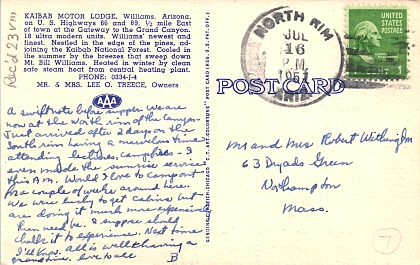 Rec'd 23rd
KAIBAB MOTOR LODGE, Williams, Arizona,
on U. S. Highways 66 and 89, ½ mile East
of town at the Gateway to the Grand Canyon.
18 ultra modern units. Williams' newest and
finest. Nestled in the edge of the pines, ad-
joining the Kaibab National Forest. Cooled in
the summer by the breezes that sweep down
Mt. Bill Williams. Heated in winter by clean
safe steam heat from central heating plant.
PHONE: 0334-J-4
MR. & MRS. LEE O. TREECE, Owners
AAA
A swift note before supper. We are
now at the North rim of the Canyon.
Just arrived after 2 days on the
South rim having a marvelous time
attending lectures, campfires - I
even made the sunrise service
this A.M. Would I love to camp out
for a couple of weeks around here.
We were lucky to get cabins but
are doing it much more expensively
than need be. I suppose should
chalk it to experience. Next time
I'll know. All is well & having a
grand time. Love to all
B
NORTH RIM
JUL
16
P.M.
ARIZ.
UNITED STATES
POSTAGE
POST CARD
Mr and Mrs Robert Withington
63 Dryads Green
Northampton
Mass.
7